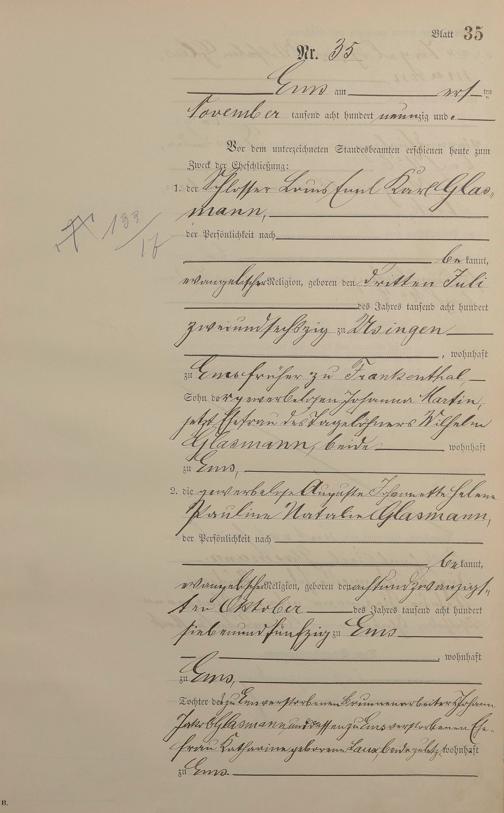 Blatt 35
Nr. 35
Ems am ersten
November tausend acht hundert neunzig und
Vor dem unterzeichneten Standesbeamten erschienen heute zum
Zweck der Eheschließung:
1. der Schlosser Louis Emil Karl Glas-
mann,
der Persönlichkeit nach
be kannt,
evangelischer Religion, geboren den dritten Juli
des Jahres tausend acht hundert
zweiundsechszig zu Usingen
, wohnhaft
zu Ems früher zu Frankenthal,
Sohn der gewerbelosen Johanna Martin,
jetzt Ehefrau des Tagelöhners Wilhelm
Glasmann, beide wohnhaft
zu Ems,
2. die gewerbelose Auguste Johannette Helene
Pauline Natalie Glasmann,
der Persönlichkeit nach
be kannt,
evangelischer Religion, geboren den achtundzwanzigs-
ten Oktober des Jahres tausend acht hundert
siebenundfünfzig zu Ems
, wohnhaft
zu Ems,
Tochter des zu Ems verstorbenen Brunnenarbeiters Johann
Jakob Glasmann und dessen zu Ems verstorbenen Ehe-
frau Katharine geborene beide zuletzt wohnhaft
zu Ems.
B.